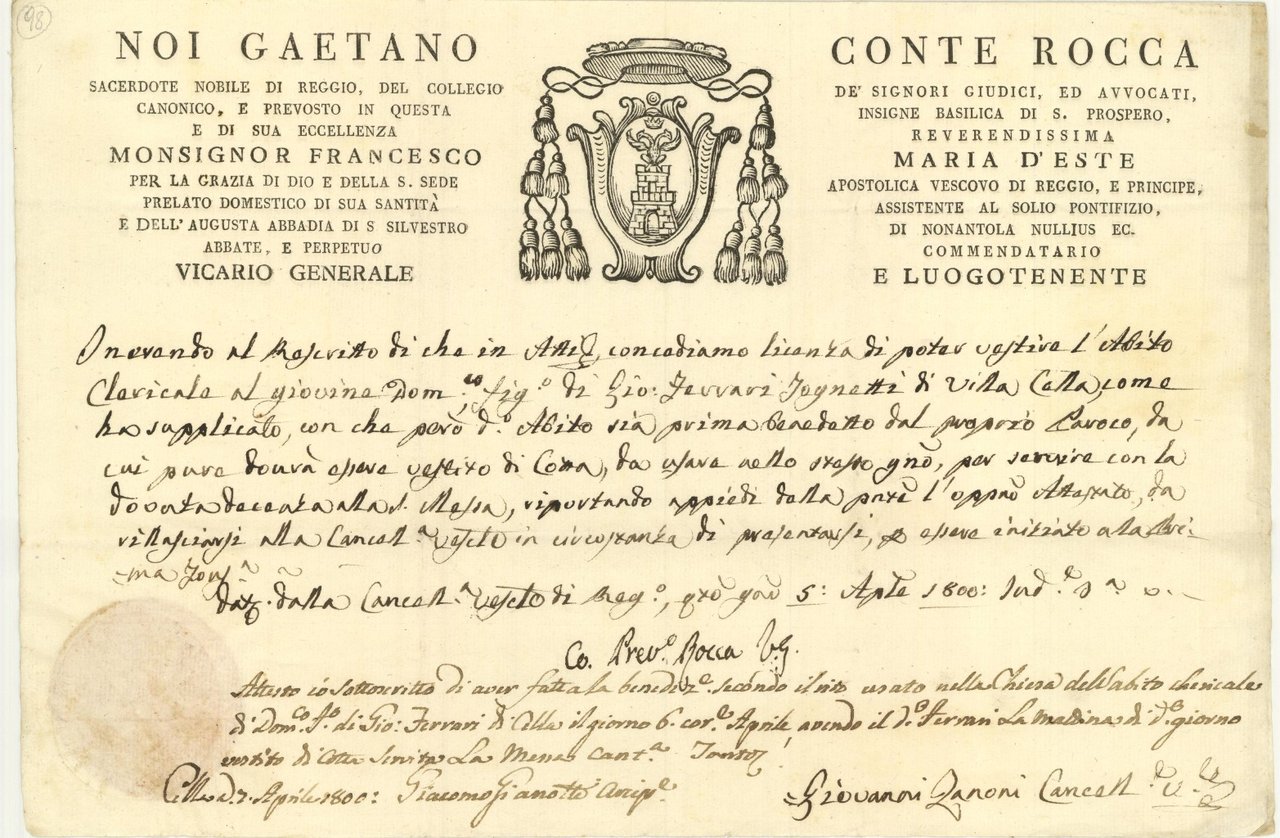 98
NOI GAETANO CONTE ROCCA
SACERDOTE NOBILE DI REGGIO, DEL COLLEGIO DE' SIGNORI GIUDICI, ED AVVOCATI,
CANONICO, E PREVOSTO IN QUESTA INSIGNE BASILICA DI S. PROSPERO,
E DI SUA ECCELLENZA REVERENDISSIMA
MONSIGNOR FRANCESCO MARIA D'ESTE
PER LA GRAZIA DI DIO E DELLA S. SEDE APOSTOLICA VESCOVO DI REGGIO, E PRINCIPE,
PRELATO DOMESTICO DI SUA SANTITÀ ASSISTENTE AL SOLIO PONTIFIZIO,
E DELL'AUGUSTA ABBADIA DI S SILVESTRO DI NONANTOLA NULLIUS EC.
ABBATE, E PERPETUO COMMENDATARIO
VICARIO GENERALE E LUOGOTENENTE
Inerendo al Rescritto di che in Atti, concediamo licenza di poter vestire l'Abito
Clericale al giovine Dom.co fig.o di Gio: Ferrari Tognetti di Villa Cella, come
ha supplicato, con che però d.o Abito sia prima benedetto dal proprio Paroco, da
cui pure dovrà essere vestito di Cotta, da usare nello stesso gno, per servire con la
dovuta decenza alla S. Messa, riportando appiedi della pnte l'oppno Attestato, da
rillasciarsi alla Cancell.a Vesclẽ in circostanza di presentarsi, essere iniziato alla Pri-
-ma Tons.a
dalla Cancell.a di Reg.o, gno 5: Aple 1800: Ind.e 3.a
Co. Prev.o Rocca V.G.
Attesto io sottoscritto di aver fatta la benediz.e secondo il rito usato nella Chiesa dell'abito chericale
di Dom.co F.o di Gio: Ferrari di Cella il giorno 6 cor.e Aprile avendo il d.o Ferrari La mattina di d.o giorno
vestito di Cotta Servita La Messa cant.a
Cella d. 7. Aprile 1800: Giacomo Gianotti Arcip.e
Giovanni Zanoni Cancell.e V.le